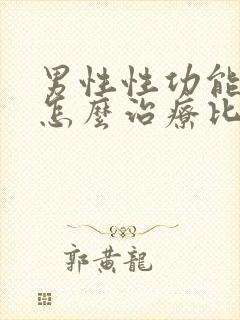 男性性功能
怎麼治療比
郭黃龍